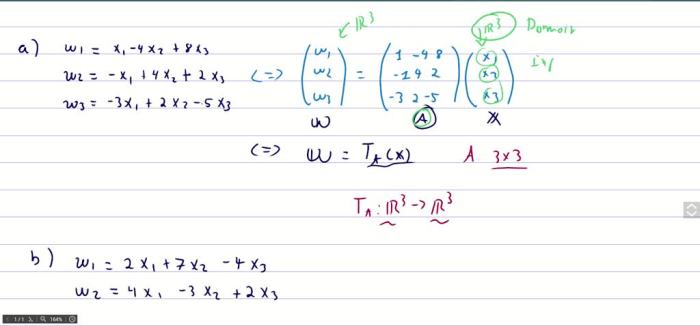 ℝ³
ℝ³ Domain
a) w1 = x1 - 4x2 + 8x3
w2 = -x1 + 4x2 + 2x3
w3 = -3x1 + 2x2 - 5x3
<=> (w1 w2 w3) = (1 -4 8
-1 4 2
-3 2 -5) (x1 x2 x3)
w A x
<=> w = T_A(x) A 3x3
T_A : ℝ³ -> ℝ³
b) w1 = 2x1 + 7x2 - 4x3
w2 = 4x1 - 3x2 + 2x3
1/1 164%